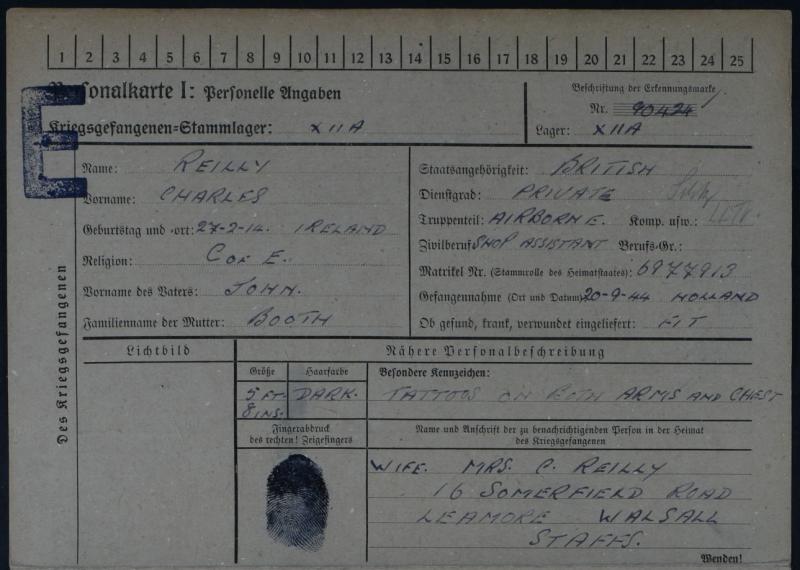 1 2 3 4 5 6 7 8 9 10 11 12 13 14 15 16 17 18 19 20 21 22 23 24 25
Personalkarte I: Personelle Angaben
Kriegsgefangenen-Stammlager: XIIA
Beschriftung der Erkennungsmarke
Nr. 90424
Lager: XIIA
Des Kriegsgefangenen
Name: REILLY
Vorname: CHARLES
Geburtstag und -ort: 27-2-14. IRELAND
Religion: C OF E.
Vorname des Vaters: JOHN.
Familienname der Mutter: BOOTH
Staatsangehörigkeit: BRITISH
Dienstgrad: PRIVATE
Truppenteil: AIRBORNE. Komp. usw.:
Zivilberuf: SHOP ASSISTANT Berufs-Gr.:
Matrikel Nr. (Stammrolle des Heimatstaates): 6977913
Gefangennahme (Ort und Datum): 20-9-44 HOLLAND
Ob gesund, krank, verwundet eingeliefert: FIT
Lichtbild
Nähere Personalbeschreibung
Größe
5 FT.
8 INS.
Haarfarbe
DARK.
Besondere Kennzeichen:
TATTOOS ON BOTH ARMS AND CHEST
Fingerabdruck
des rechten! Zeigefingers
Name und Anschrift der zu benachrichtigenden Person in der Heimat
des Kriegsgefangenen
WIFE. MRS. C. REILLY
16 SOMERFIELD ROAD
LEAMORE WALSALL
STAFFS.
Wenden!